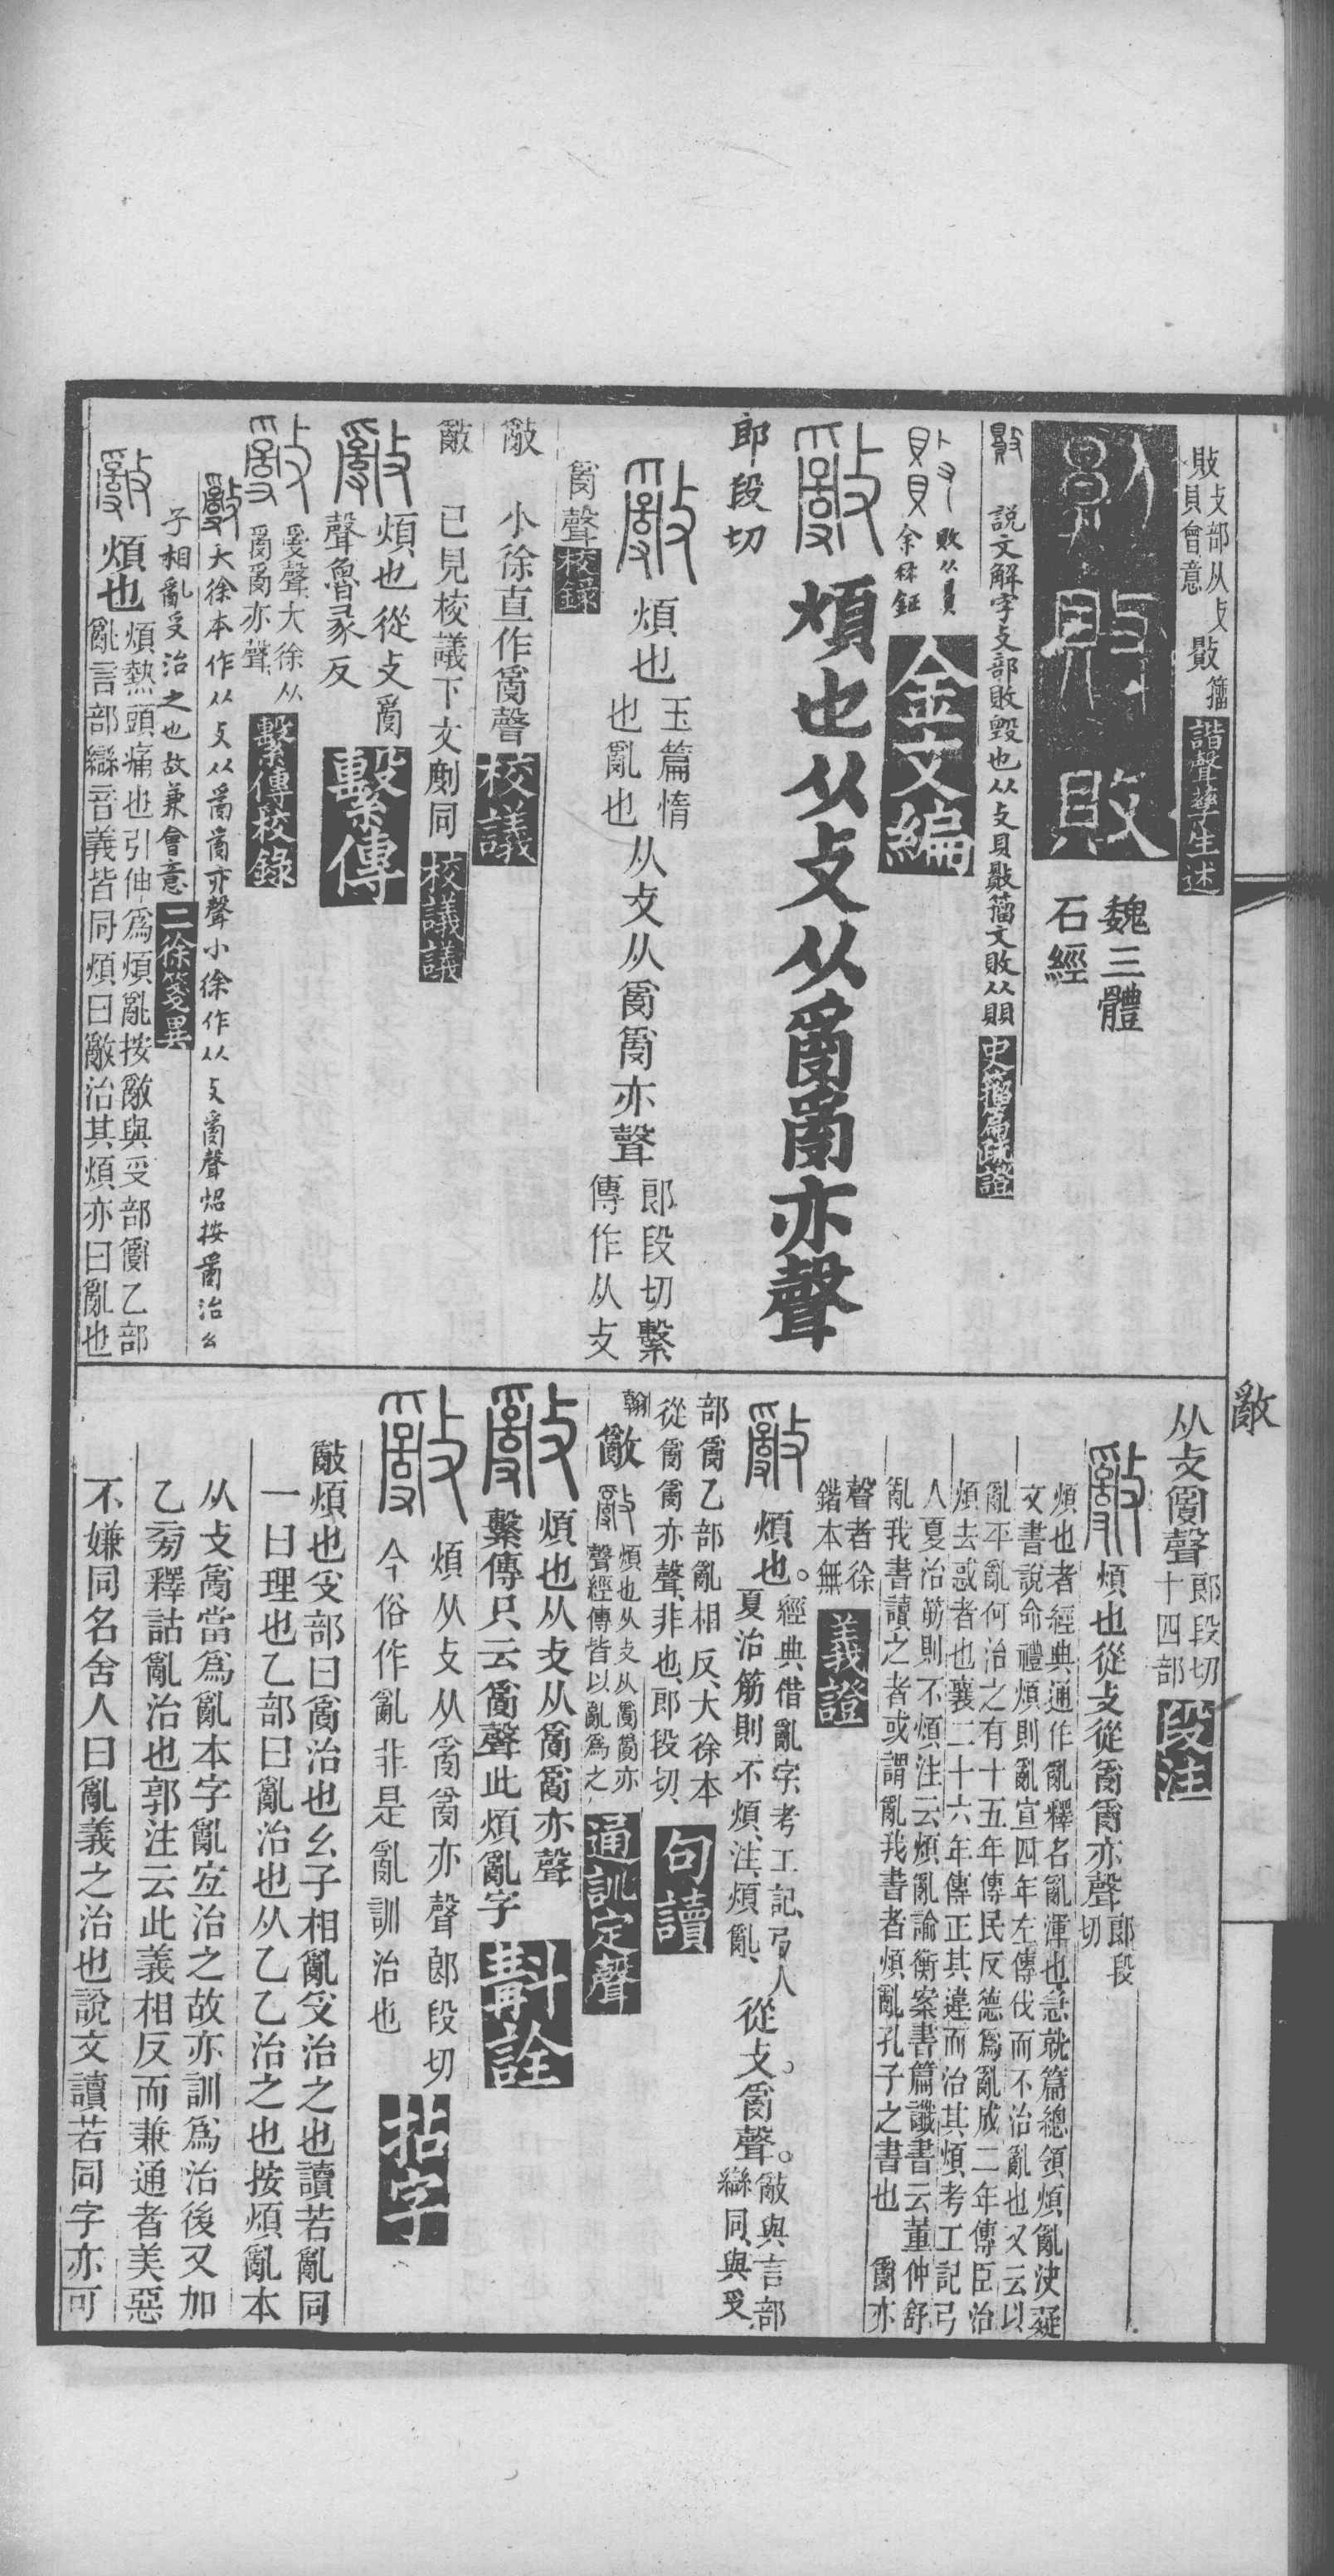 敗支部从攴
貝會意
諧聲孳生述
魏三體
石經
說文解字攴部敗毀也从攴貝敗籀文敗从賏
史籀篇疏證
敗从貝
余冉鉦
金文編
煩也从攴从𤔔𤔔亦聲
郎段切
煩也
玉篇惰
也亂也
从攴从𤔔𤔔亦聲
郎段切繫
傳作从攴
𤔔聲
校錄
𢿢
小徐直作𤔔聲
校議
𢿢
已見校議下文劇同
校議議
煩也從攴𤔔
聲魯彖反
繫傳
𤔔聲大徐从
𤔔𤔔亦聲
繫傳校錄
大徐本作从攴从𤔔𤔔亦聲小徐作从攴𤔔聲炤按𤔔治幺
子相亂𠬪治之也故兼會意
二徐箋異
煩也
煩熱頭痛也引伸爲煩亂按𢿢與𠬪部𤔔乙部
亂言部䜌音義皆同煩曰𢿢治其煩亦曰亂也
𢿢
从攴𤔔聲
郎段切
十四部
段注
煩也從攴從𤔔𤔔亦聲
郎段
切
煩也者經典通作亂釋名亂渾也急就篇總領煩亂決疑
文書說命禮煩則亂宣四年左傳伐而不治亂也又云以
亂平亂何治之有十五年傳民反德爲亂成二年傳臣治
煩去惑者也襄二十六年傳正其違而治其煩考工記弓
人夏治筋則不煩注云煩亂論衡案書篇讖書云董仲舒
亂我書讀之者或謂亂我書者煩亂孔子之書也 𤔔亦
聲者徐
鍇本無
義證
煩也。
經典借亂字考工記弓人
夏治筋則不煩注煩亂
從攴。𤔔聲。
𢿢與言部
䜌同與𠬪
部𤔔乙部亂相反大徐本
從𤔔𤔔亦聲非也郎段切
句讀
翰
𢿢
煩也从攴从𤔔𤔔亦
聲經傳皆以亂爲之
通訓定聲
煩也从攴从𤔔𤔔亦聲
繫傳只云𤔔聲此煩亂字
斠詮
煩从攴从𤔔𤔔亦聲郎段切
今俗作亂非是亂訓治也
拈字
𢿢煩也𠬪部曰𤔔治也幺子相亂𠬪治之也讀若亂同
一曰理也乙部曰亂治也从乙乙治之也按煩亂本
从攴𤔔當爲亂本字亂宐治之故亦訓爲治後又加
乙㫄釋詁亂治也郭注云此義相反而兼通者美惡
不嫌同名舍人曰亂義之治也說文讀若同字亦可